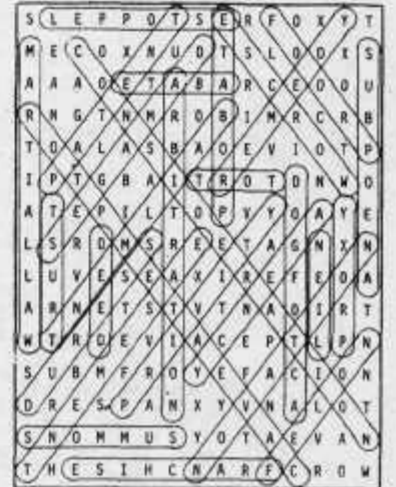 S L E P P O T S E R F O X Y T
M E C O X N U D T S L O O X S
A A A O E T A B A R C E D O U
R N G T N M R O B I M R C R B
T O A L A S B A O E V I O T P
I P T G B A I T R O T D N W O
A T E P I L T O P V Y O A Y E
L S R O M S R E E T A G N X N
L U V E S E A X I R E F E O A
A R N E T S T V T N A O I R T
W T R O E V I A C E P T L P N
S U B M F R O Y E F A C I O N
D R E S P A N X Y V N A L O T
S N O M M U S Y O T A E V A N
T H E S I H C N A R F C R O W